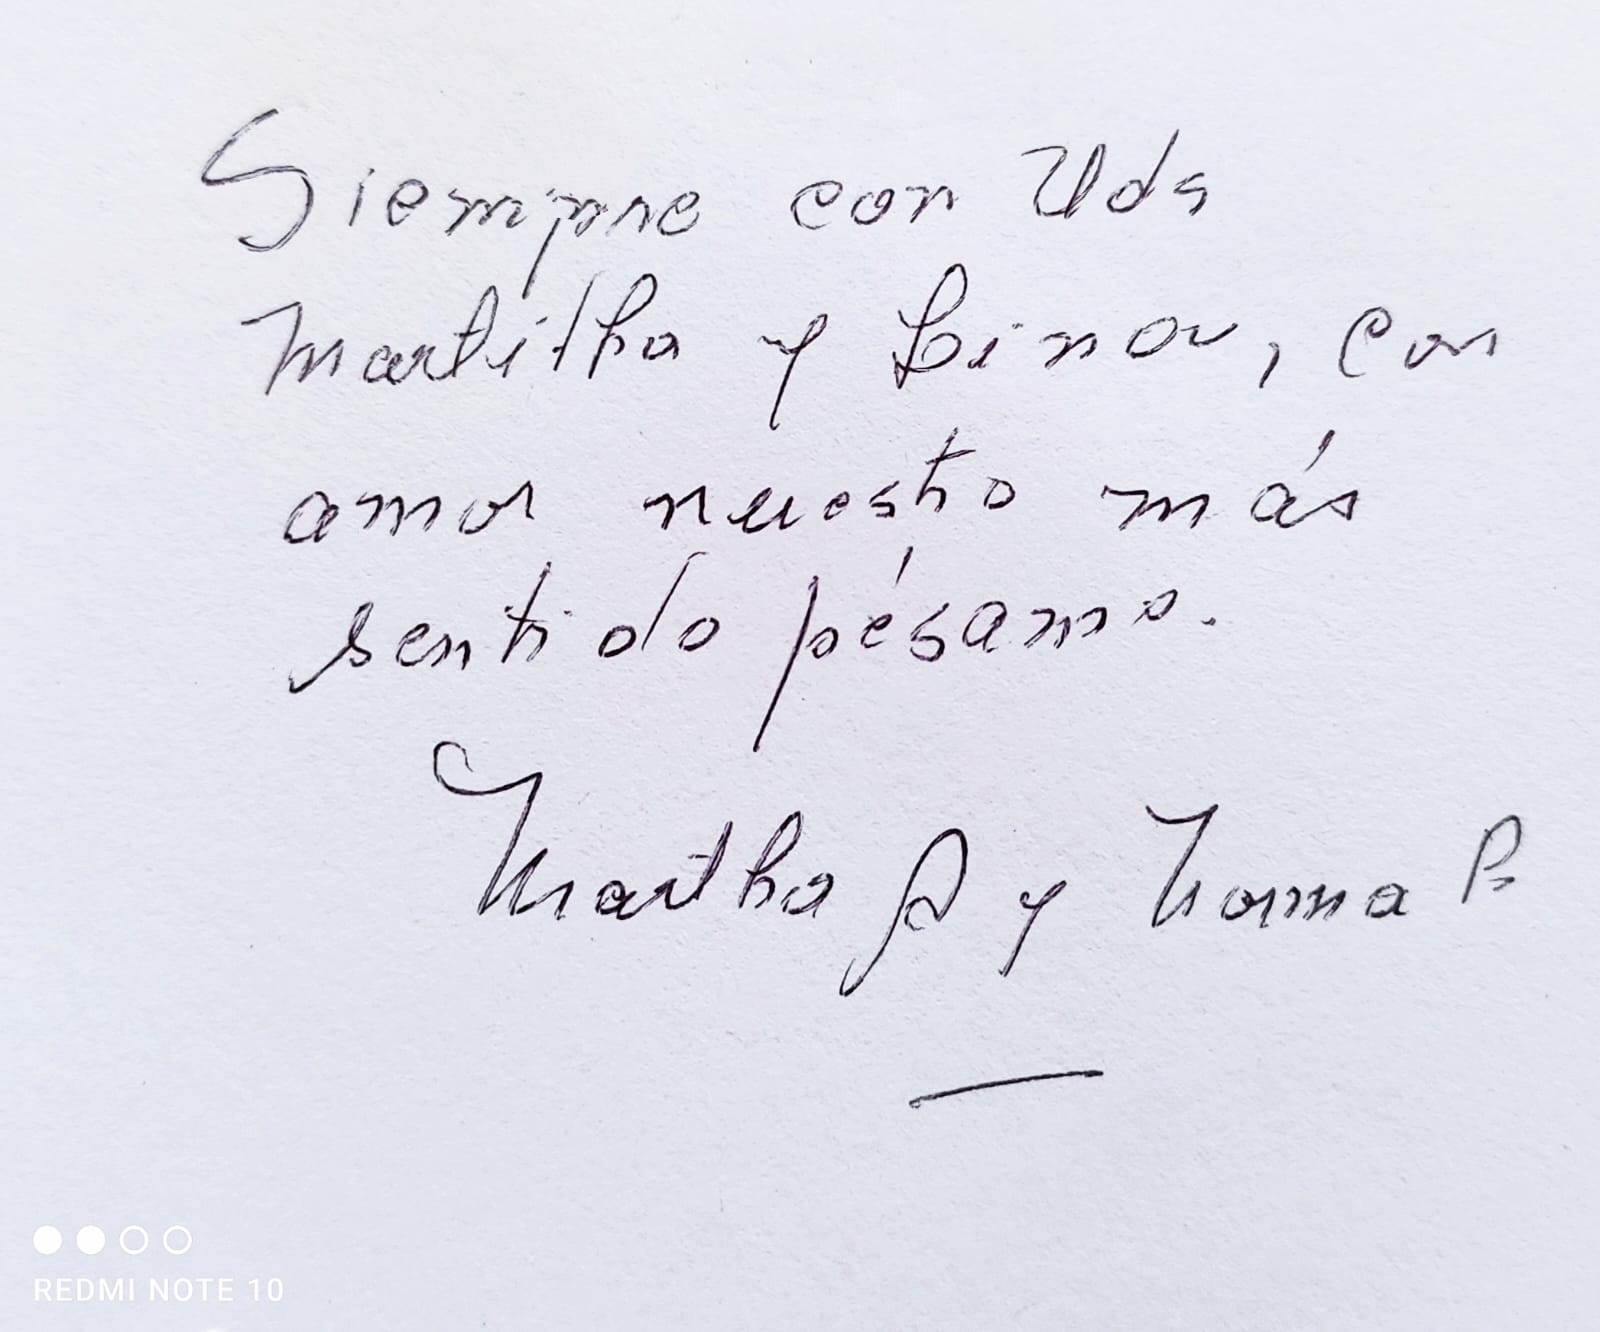 Siempre con Uds
Martitha y Linor, con
amor nuestro más
sentido pésame.
Martha A y Norma P
REDMI NOTE 10